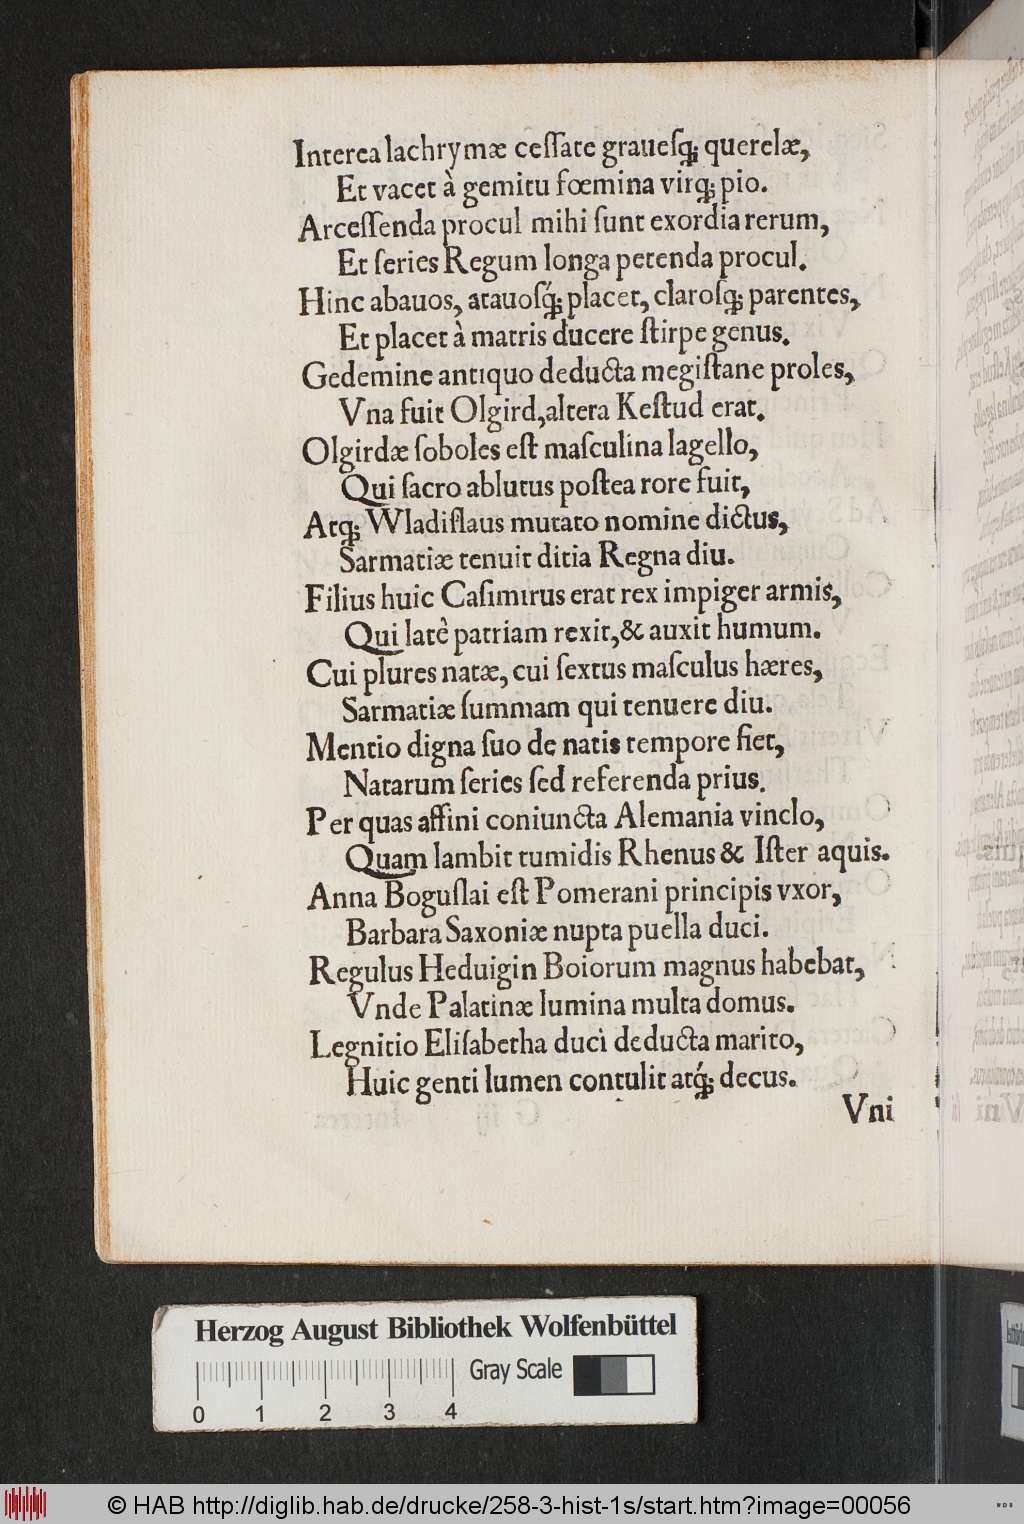 Interea lachrymæ ceſſate graueſq; querelæ,
Et vacet à gemitu fœmina virq; pio.
Arceſſenda procul mihi ſunt exordia rerum,
Et ſeries Regum longa petenda procul.
Hinc abauos, atauoſq́; placet, claroſq; parentes,
Et placet à matris ducere ſtirpe genus.
Gedemine antiquo deducta megiſtane proles,
Vna fuit Olgird, altera Keſtud erat.
Olgirdæ ſoboles eſt maſculina Iagello,
Qui ſacro ablutus poſtea rore fuit,
Atq; Wladiſlaus mutato nomine dictus,
Sarmatiæ tenuit ditia Regna diu.
Filius huic Caſimirus erat rex impiger armis,
Qui latè patriam rexit, & auxit humum.
Cui plures natæ, cui ſextus maſculus hæres,
Sarmatiæ ſummam qui tenuere diu.
Mentio digna ſuo de natis tempore fiet,
Natarum ſeries ſed referenda prius.
Per quas affini coniuncta Alemania vinclo,
Quam lambit tumidis Rhenus & Iſter aquis.
Anna Boguſlai eſt Pomerani principis vxor,
Barbara Saxoniæ nupta puella duci.
Regulus Heduigin Boiorum magnus habebat,
Vnde Palatinæ lumina multa domus.
Legnitio Eliſabetha duci deducta marito,
Huic genti lumen contulit atq́; decus.
Vni
Herzog August Bibliothek Wolfenbüttel
Gray Scale
0 1 2 3 4
© HAB http://diglib.hab.de/drucke/258-3-hist-1s/start.htm?image=00056